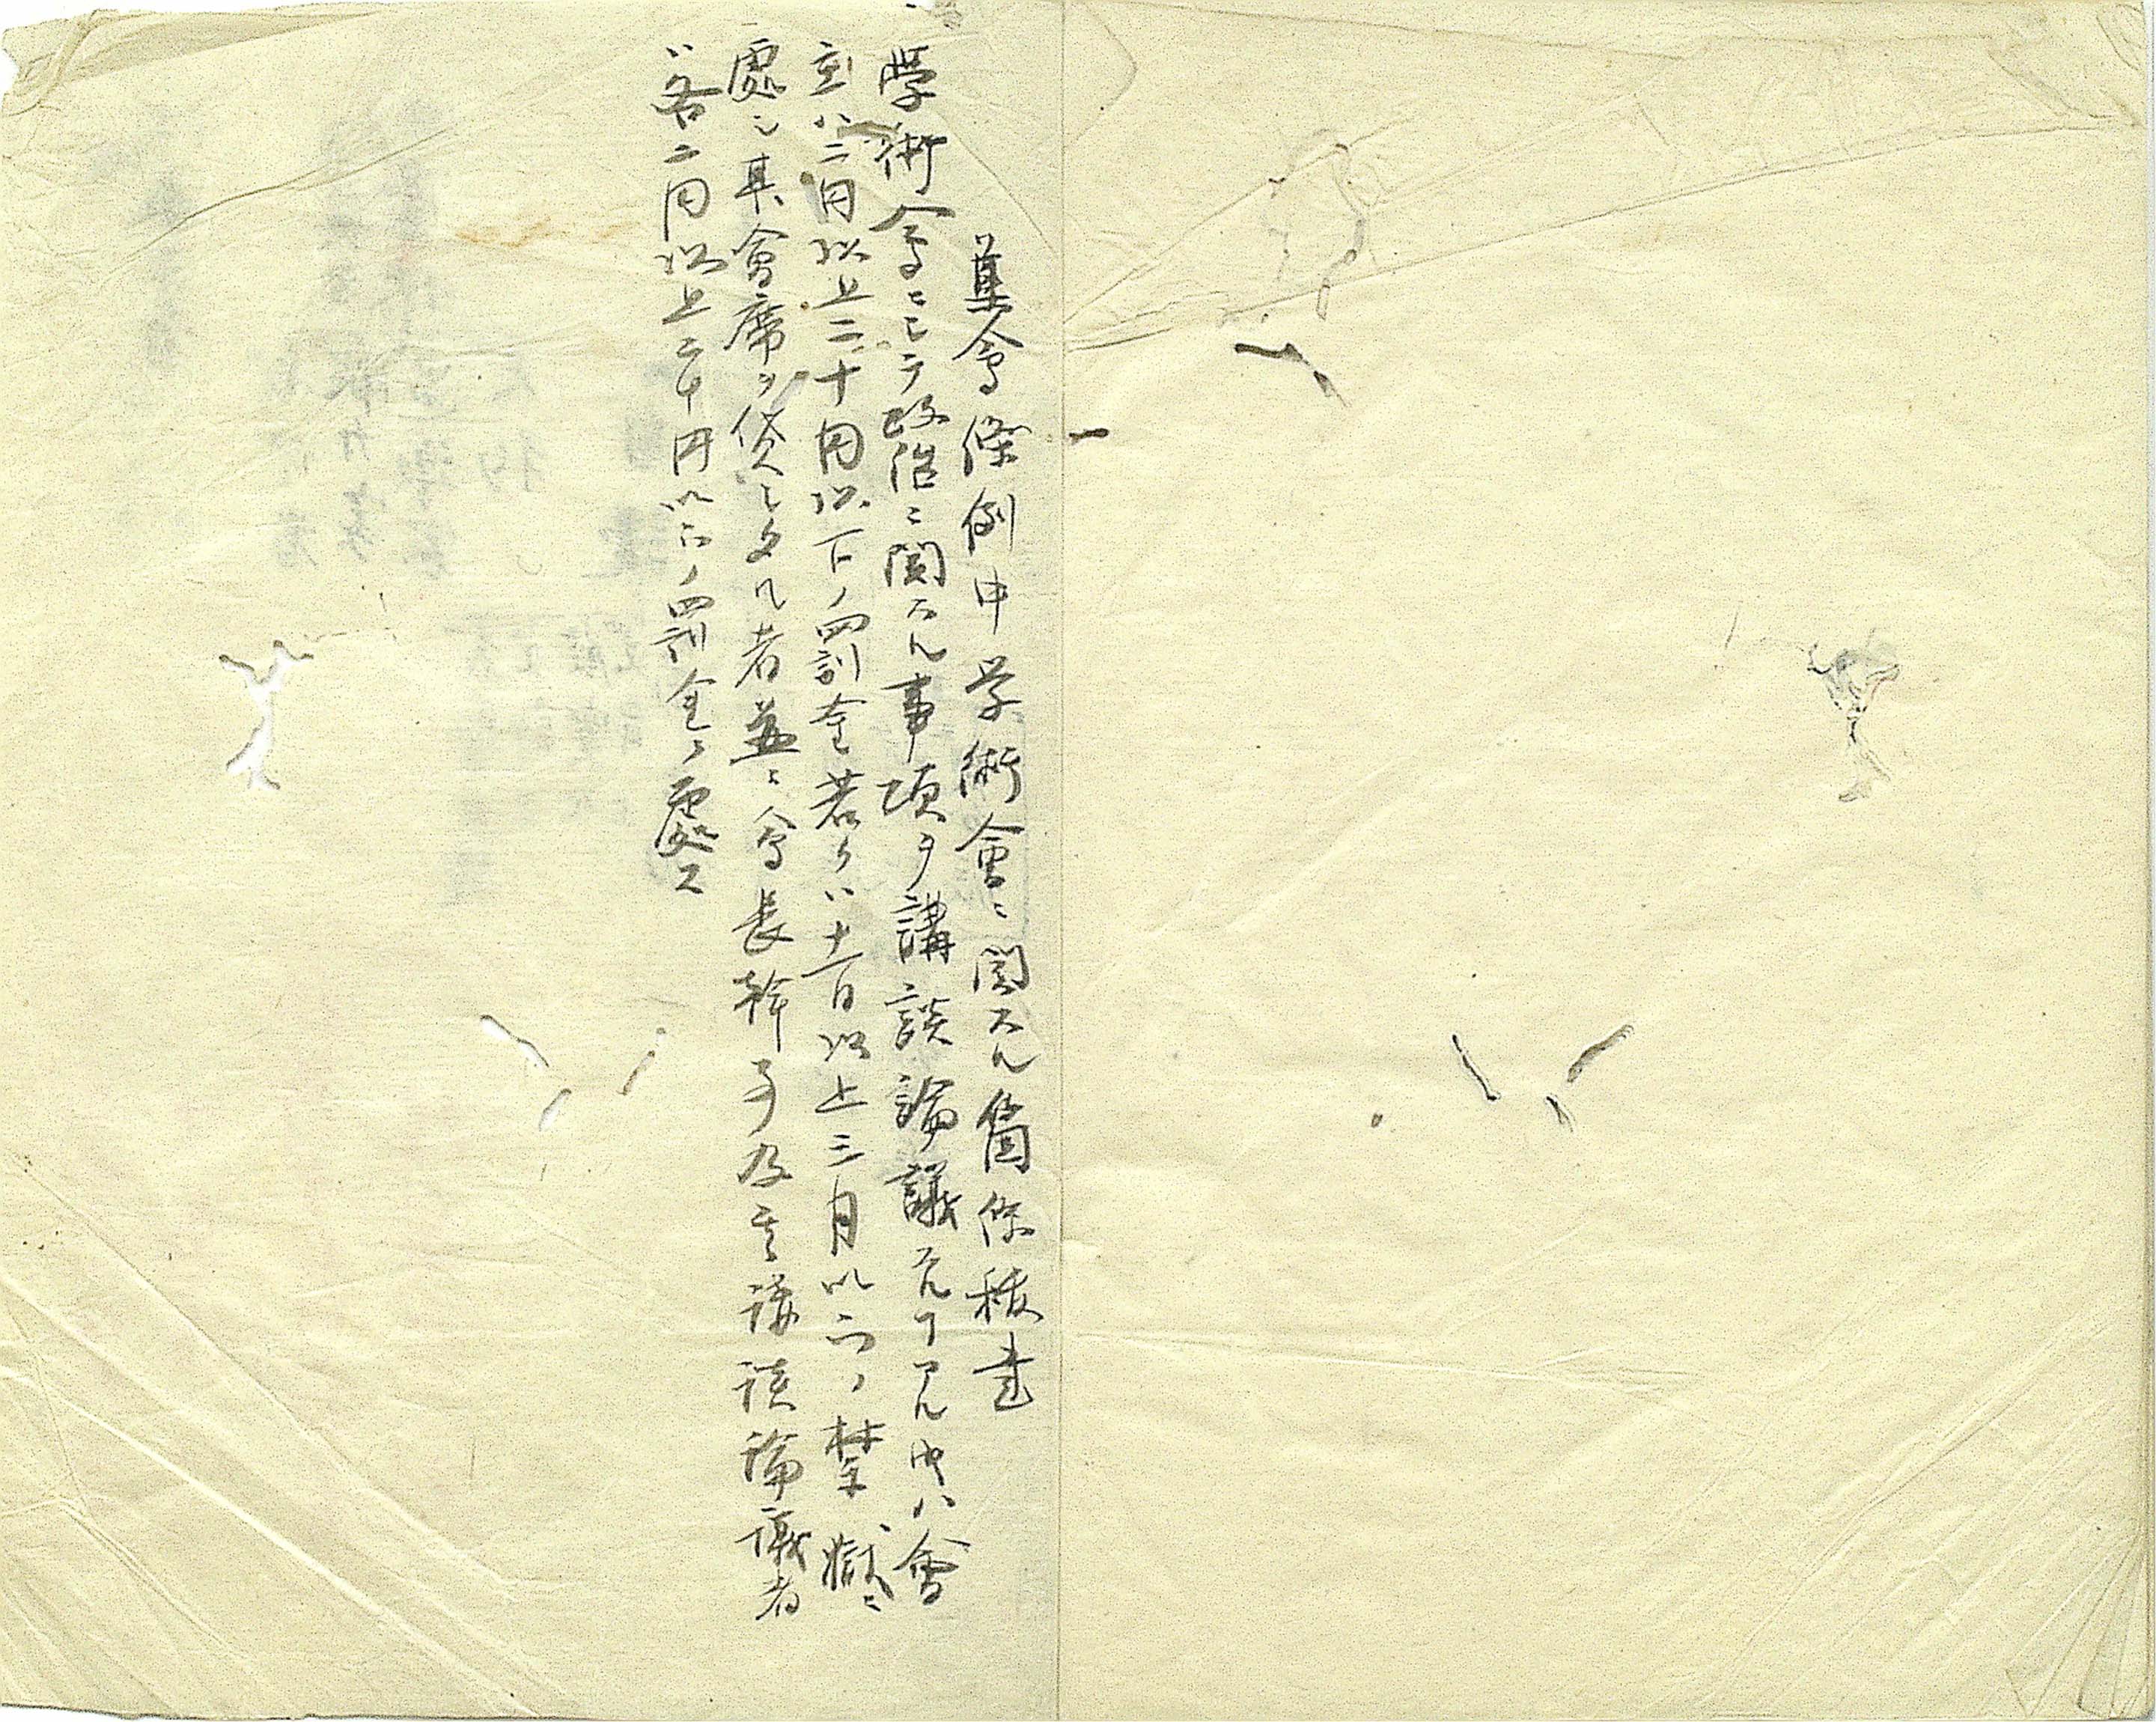 集會條例中学術會ニ関スル箇條移書
學術會ニシテ政治ニ関スル事項ヲ講談論議スルヿアル時ハ會
主ハ二円以上二十円以下ノ罰金若クハ十一日以上三月以下ノ禁獄ニ
處シ其會席ヲ貸シタル者並ニ會長幹事及其講談論議者
ハ各二円以上二十円以下ノ罰金ニ處ス